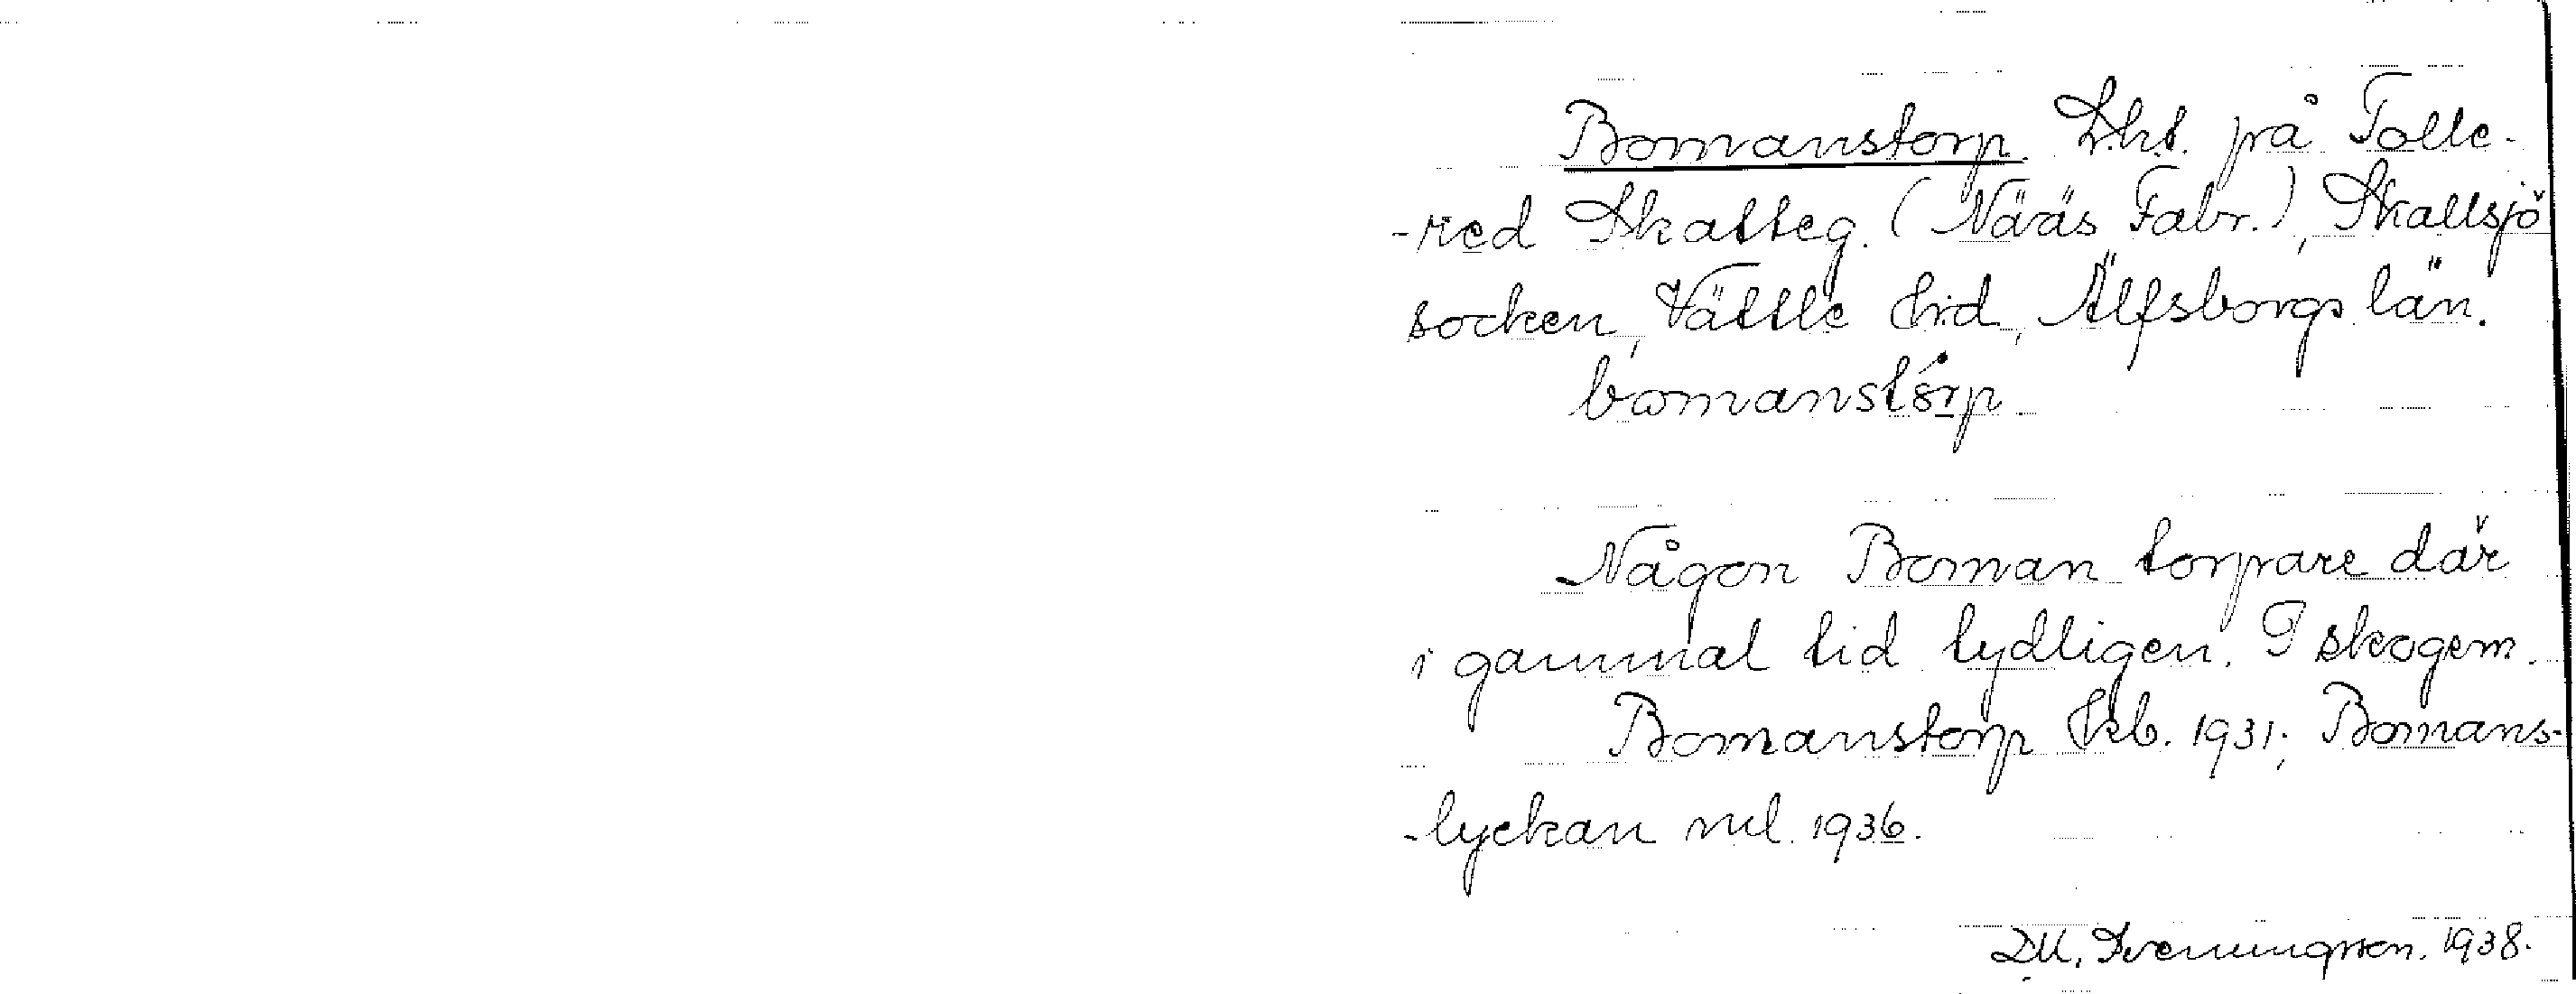 Bomanstorp. Lht. på Tolle-
-red Skatteg. (Nääs Fabr.), Skallsjö
socken, Vättle hd, Älfsborgs län.
bomanstórp
Någon Boman torpare där
i gammal tid tydligen. I skogem.
Bomanstorp Jkb. 1931; Bomans-
-lyckan ml. 1936.
D.U., Svenungsson. 1938.